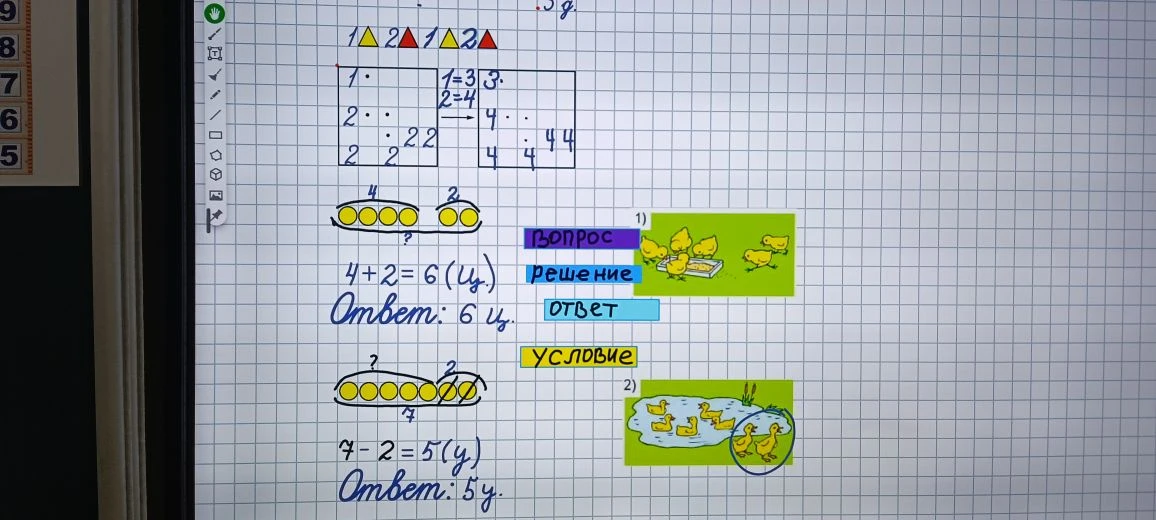 9
8
7
6
5
3 д.
1 2 1 2
1 1=3 3
2 2=4 4
2 2 4 4
2 2 4 4
4 2
?
1)
ВОПРОС
4+2=6(ц.)
решение
Ответ: 6 ц.
ответ
условие
? 2
7
2)
7-2=5(у)
Ответ: 5у.